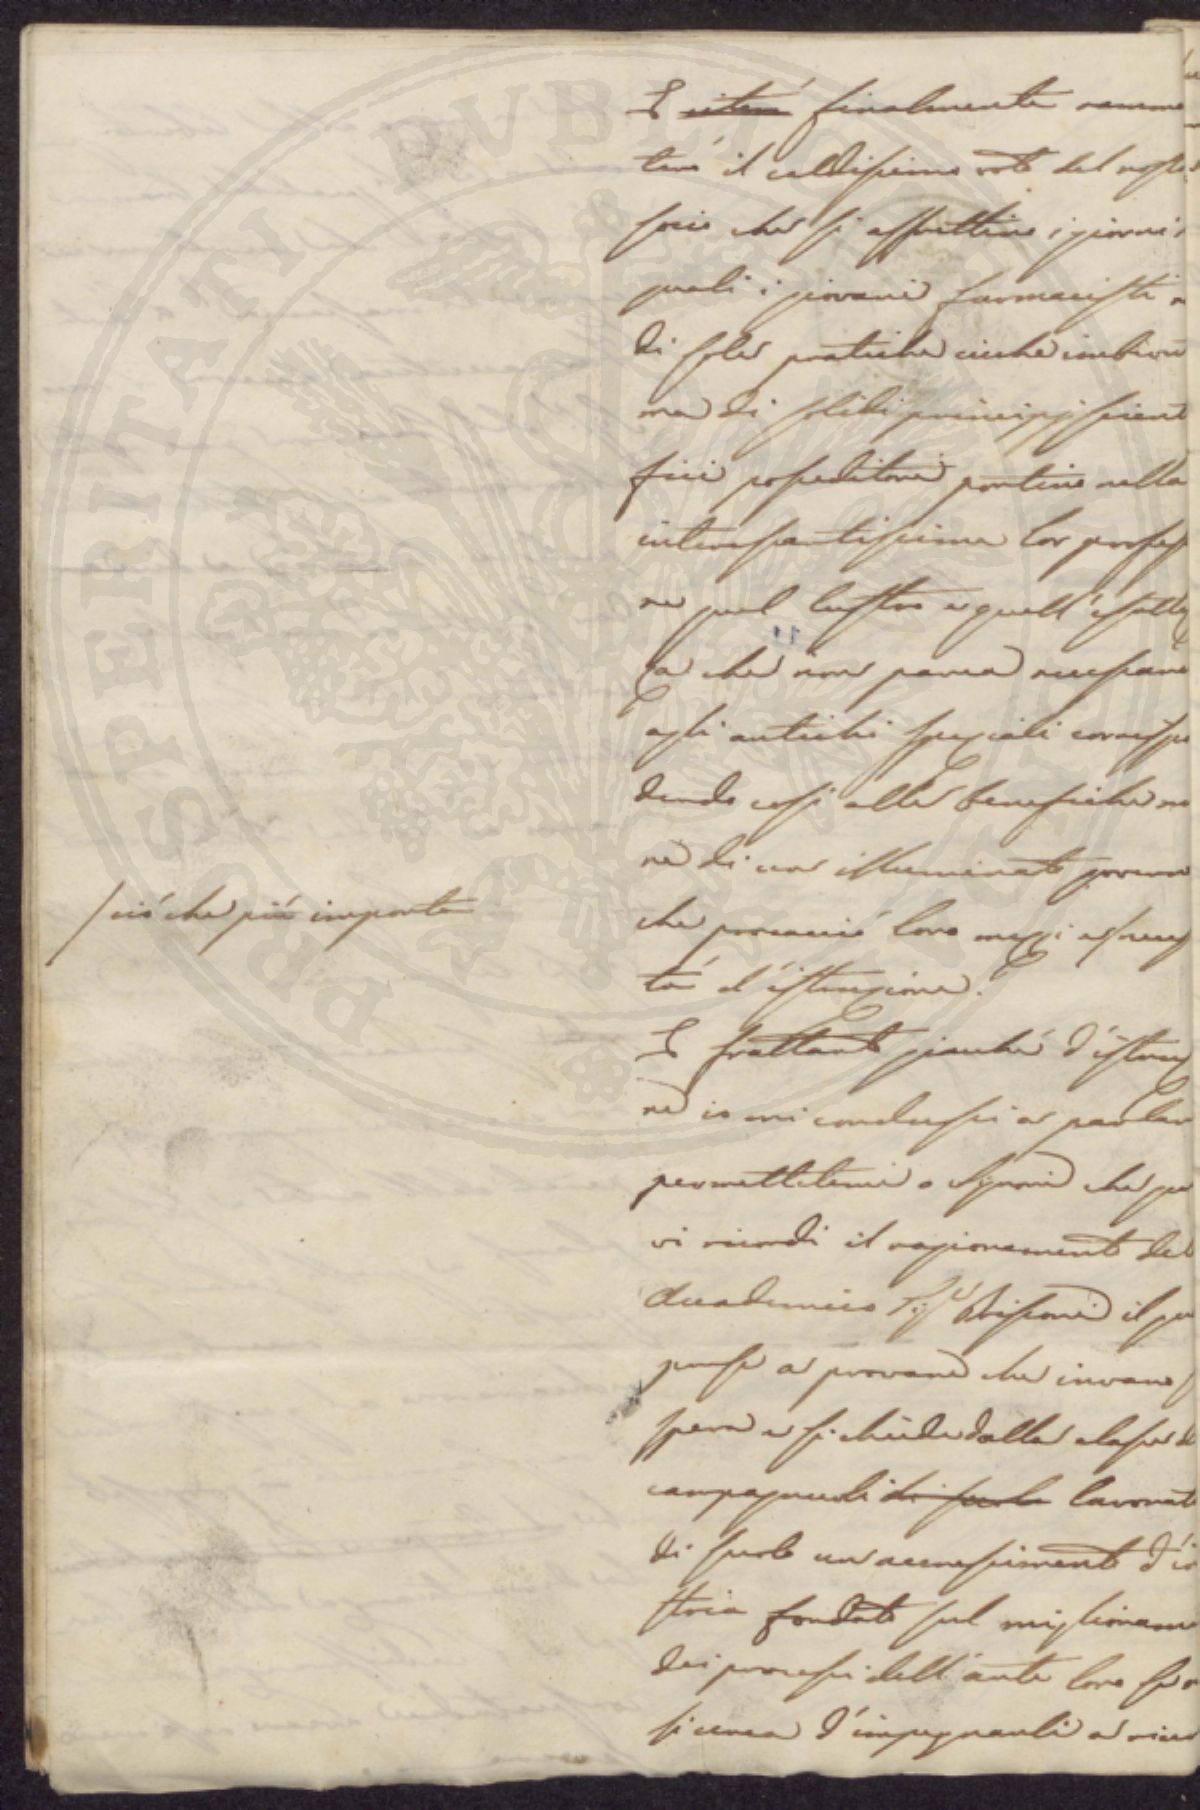 E ~~citerò~~ finalmente ramme
terò il caldissimo voto del nostro
socio che si affrettino i giorni
quali i giovani farmacisti
di sole pratiche cieche imbevu
ma di solidi principj scienti
fici posseditori portino nella
interessantissima lor profess
ne quel lustro e quell'esattez
za che non parea necessario
agli antichi speziali corrispo
dendo così alle benefiche
re di un illuminato governo
che procacciò loro mezzi e
tà d'istruzione.
/ ciò che più importa
E frattanto giacchè d'istruz
ne io mi condussi a parlar
permettetemi o Signori che
vi ricordi il ragionamento del
Accademico Sig.r il
prese a provare che invano
spera e si chiede dalla classe
campagnuoli ~~di suolo~~ lavorat
di suolo un accrescimento d'in
stria fondato sul migliorame
dei processi dell'arte loro se
si cerca d'impegnarli a